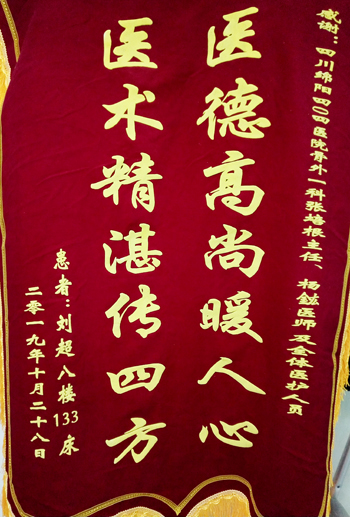 感谢：四川绵阳四〇四医院骨外一科张培根主任、杨铉医师及全体医护人员
医德高尚暖人心
医术精湛传四方
患者：刘超八楼133床
二零一九年十月二十八日